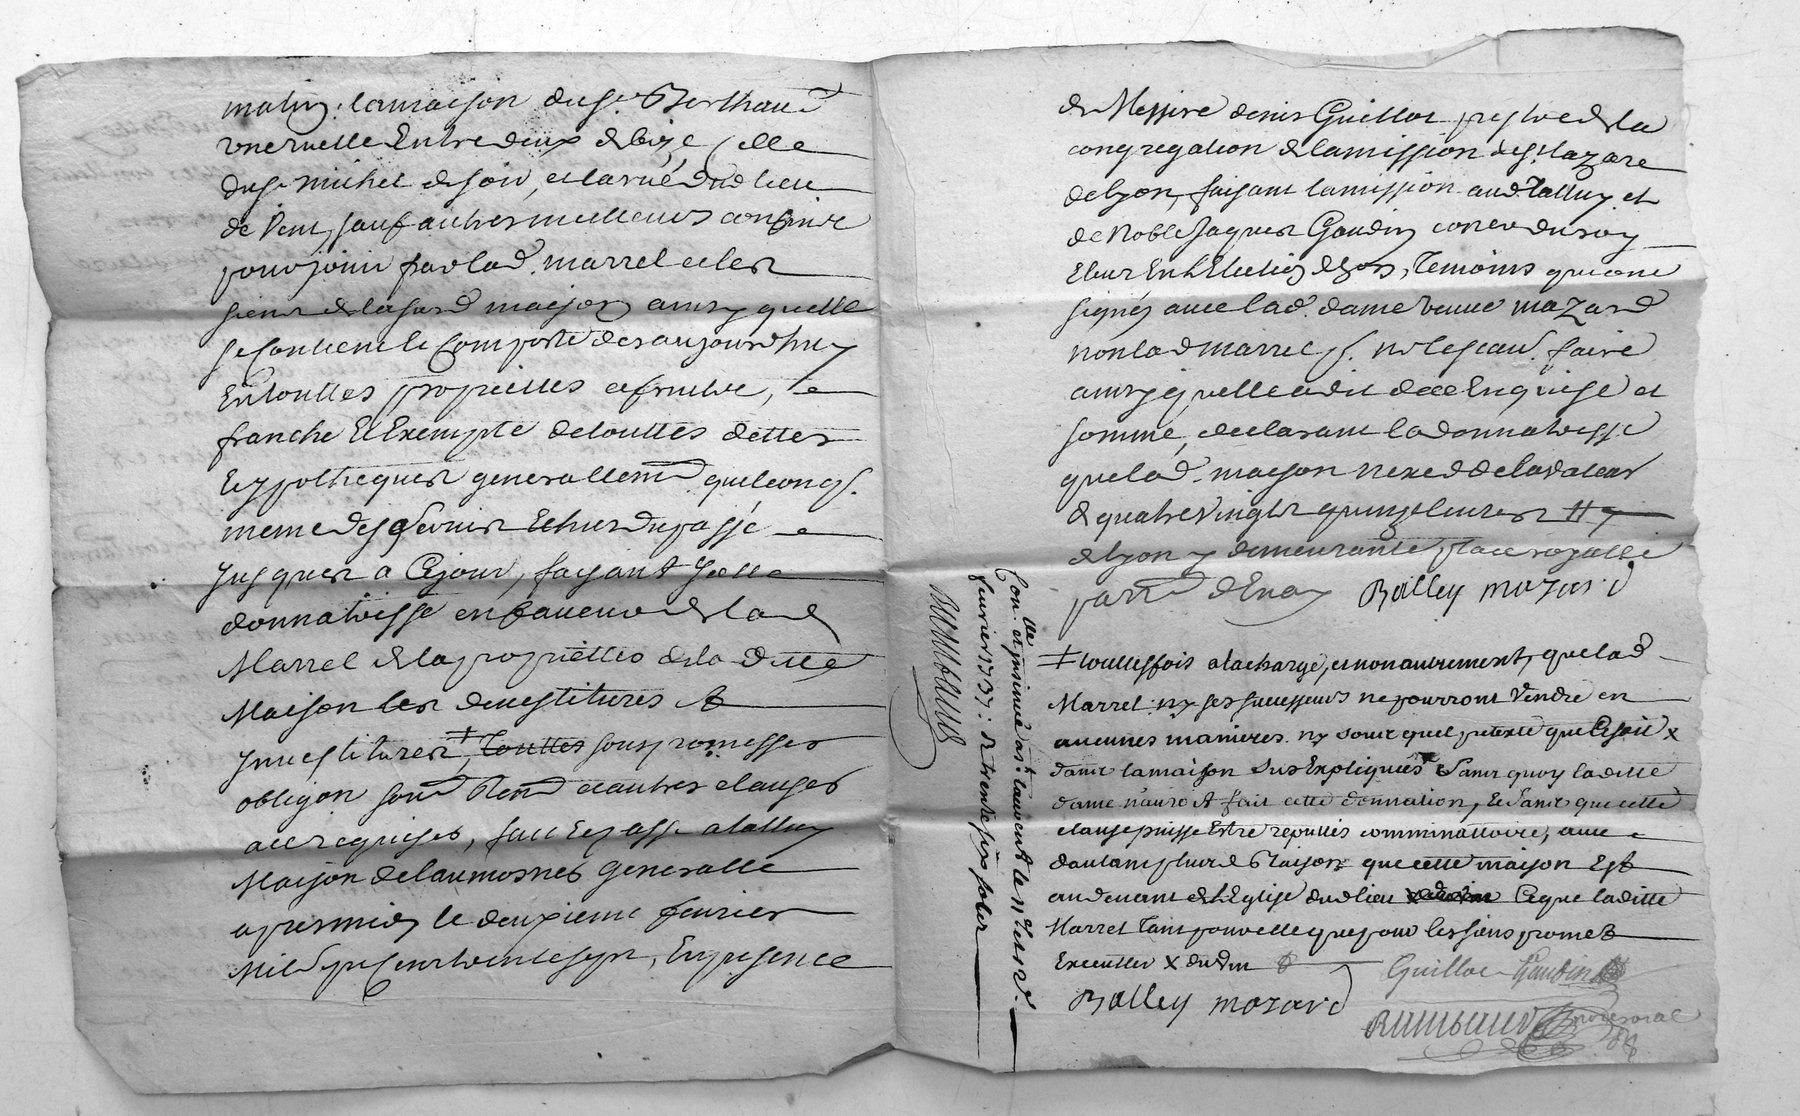 matin, la maison du sr Berthaud
une ruelle entre deux de bize celle
du sr michel de soir, et la rüé dud lieu
de vent, sauf autres meilleurs confins
pour jouir par lad. marrel et les
siens de lasusd maison ainsy quelle
se contient et comporte des aujourdhuy
En touttes proprietés et fruits, 
franche Et Exempte de touttes dettes
hypotheques generallemt quelconqs.
meme des servis Echus du passé
jusques a Cejour, faisant Jcelle
donnatrisse en faveur de lad
Marrel de la proprietté de la ditte
Maison les devestitures et
jnvestitures ‡, touttes sous promesses
obligon soumd Renond et autres clauses
ace requises, fait et passé a talluy
Maison de laumosnes generalle
apresmidy le deuxieme fevrier
Mil sept cent trente sept, En presence
de Messire denis Guillot prestre de la
congregation de la mission de st lazare
de lyon, faisant la mission aud Talluy et
de Noble Jaques Gaudin coner du roy
Eleu En lElection de lyon, Temoins qui ont
signés avec lad. dame veuve mazard
non lad marrel p. ne le scav. faire
ainsy quelle a dit de ce Enquise et
sommé, declarant la donnatrisse
que lad. maison nexcedde la valeur
de quatre vingts quinze livres
de lyon y demeurante place royalle
parrd dEnay Balley mazard
‡ touttesfois a la charge, et non autrement, que lad
Marrel ny ses successeurs ne pourront vendre en
aucunes manieres ny sous quel pretexte que Ce soit x
dans la maison sus Expliquees sans quoy la ditte
dame nauroit fait cette donnation, Et sans que cette
clause puisse Estre reputtés comminattoire, avec
dautant plus de Raison que cette maison Est
au devant de lEglise dud lieu Ce que laditte
Marrel tant pour elle que pour les siens promet
Executter x du vin
Guillot Gaudin
Balley mazard
Rambaud
Con. lle et jnsinué a st. laurent le
fevrier 1737: R trente six sols
Rambaud